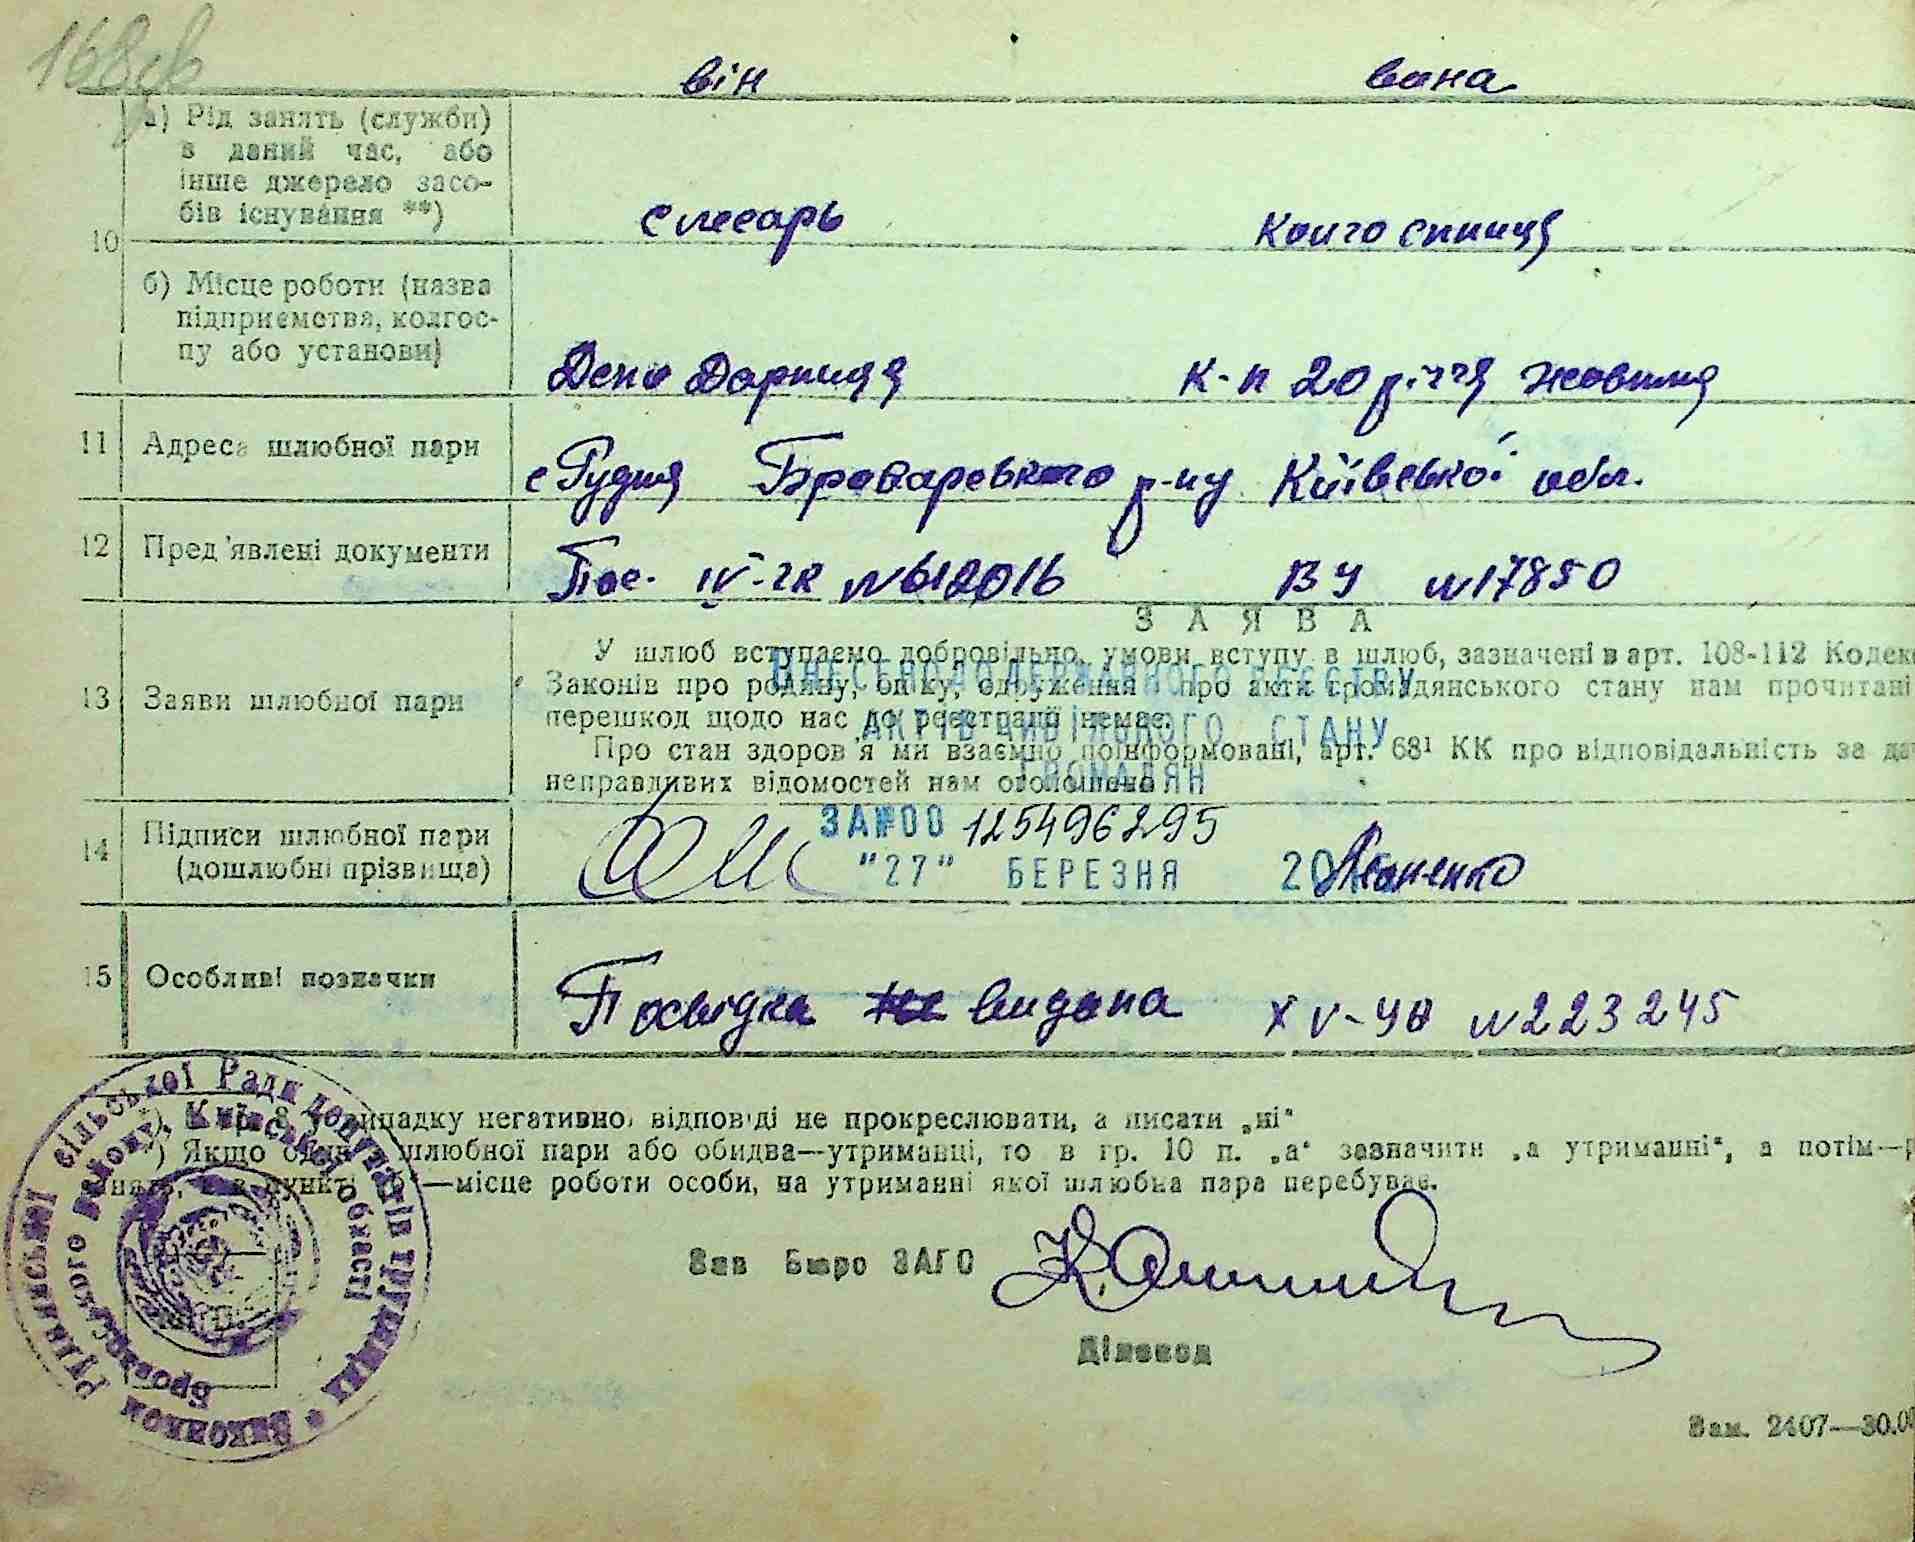 168зв
він вона
а) Рід занять (служби)
в даний час, або
інше джерело засо-
бів існування **)
слесарь Колгоспниця
10
б) Місце роботи (назва
підприємства, колгос-
пу або установи)
Депо Дарниця к-п 20 річчя жовтня
11 Адреса шлюбної пари с Рудня Броварського р-ну Київської обл.
12 Пред'явлені документи Пос. IV-ГК №612016 ВУ №17850
ЗАЯВА
У шлюб вступаємо добровільно, умови вступу в шлюб, зазначені в арт. 108-112 Кодек
Законів про родину, опіку, одруження і про акти громадянського стану нам прочитані
перешкод щодо нас до реєстрації немає.
13 Заяви шлюбної пари
Про стан здоров'я ми взаємно поінформовані, арт. 68¹ КК про відповідальність за да
неправдивих відомостей нам оголошено
ВНЕСЕНО ДО ДЕРЖАВНОГО РЕЄСТРУ
АКТІВ ЦИВІЛЬНОГО СТАНУ
ГРОМАДЯН
ЗА №00 125496295
"27" БЕРЕЗНЯ
14 Підписи шлюбної пари
(дошлюбні прізвища)
15 Особливі позначки Посвідка видана XV-ЧЮ №223245
випадку негативної відповіді не прокреслювати, а писати „ні“
) Якщо один з шлюбної пари або обидва—утриманці, то в гр. 10 п. „а“ зазначити „а утриманні“, а потім—
—місце роботи особи, на утриманні якої шлюбна пара перебуває.
Зав Бюро ЗАГС
Діловод
Зам. 2407—30.00
Виконком Руднянської сільської Ради депутатів трудящих
Броварського району, Київської області